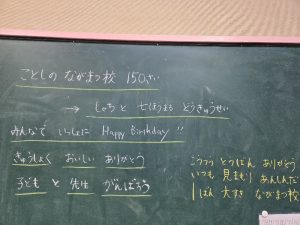 ことしの ながまつ校 150さい
→ しゃちと 七ほうまる とうきゅうせい
みんなで いっしょに Happy Birthday !!
きゅうしょく おいしい ありがとう
子ども と 先生 がんばろう
こうつう とうばん ありがとう
いつも 見まもり あんしんだ
1ばん 大すき ながまつ校